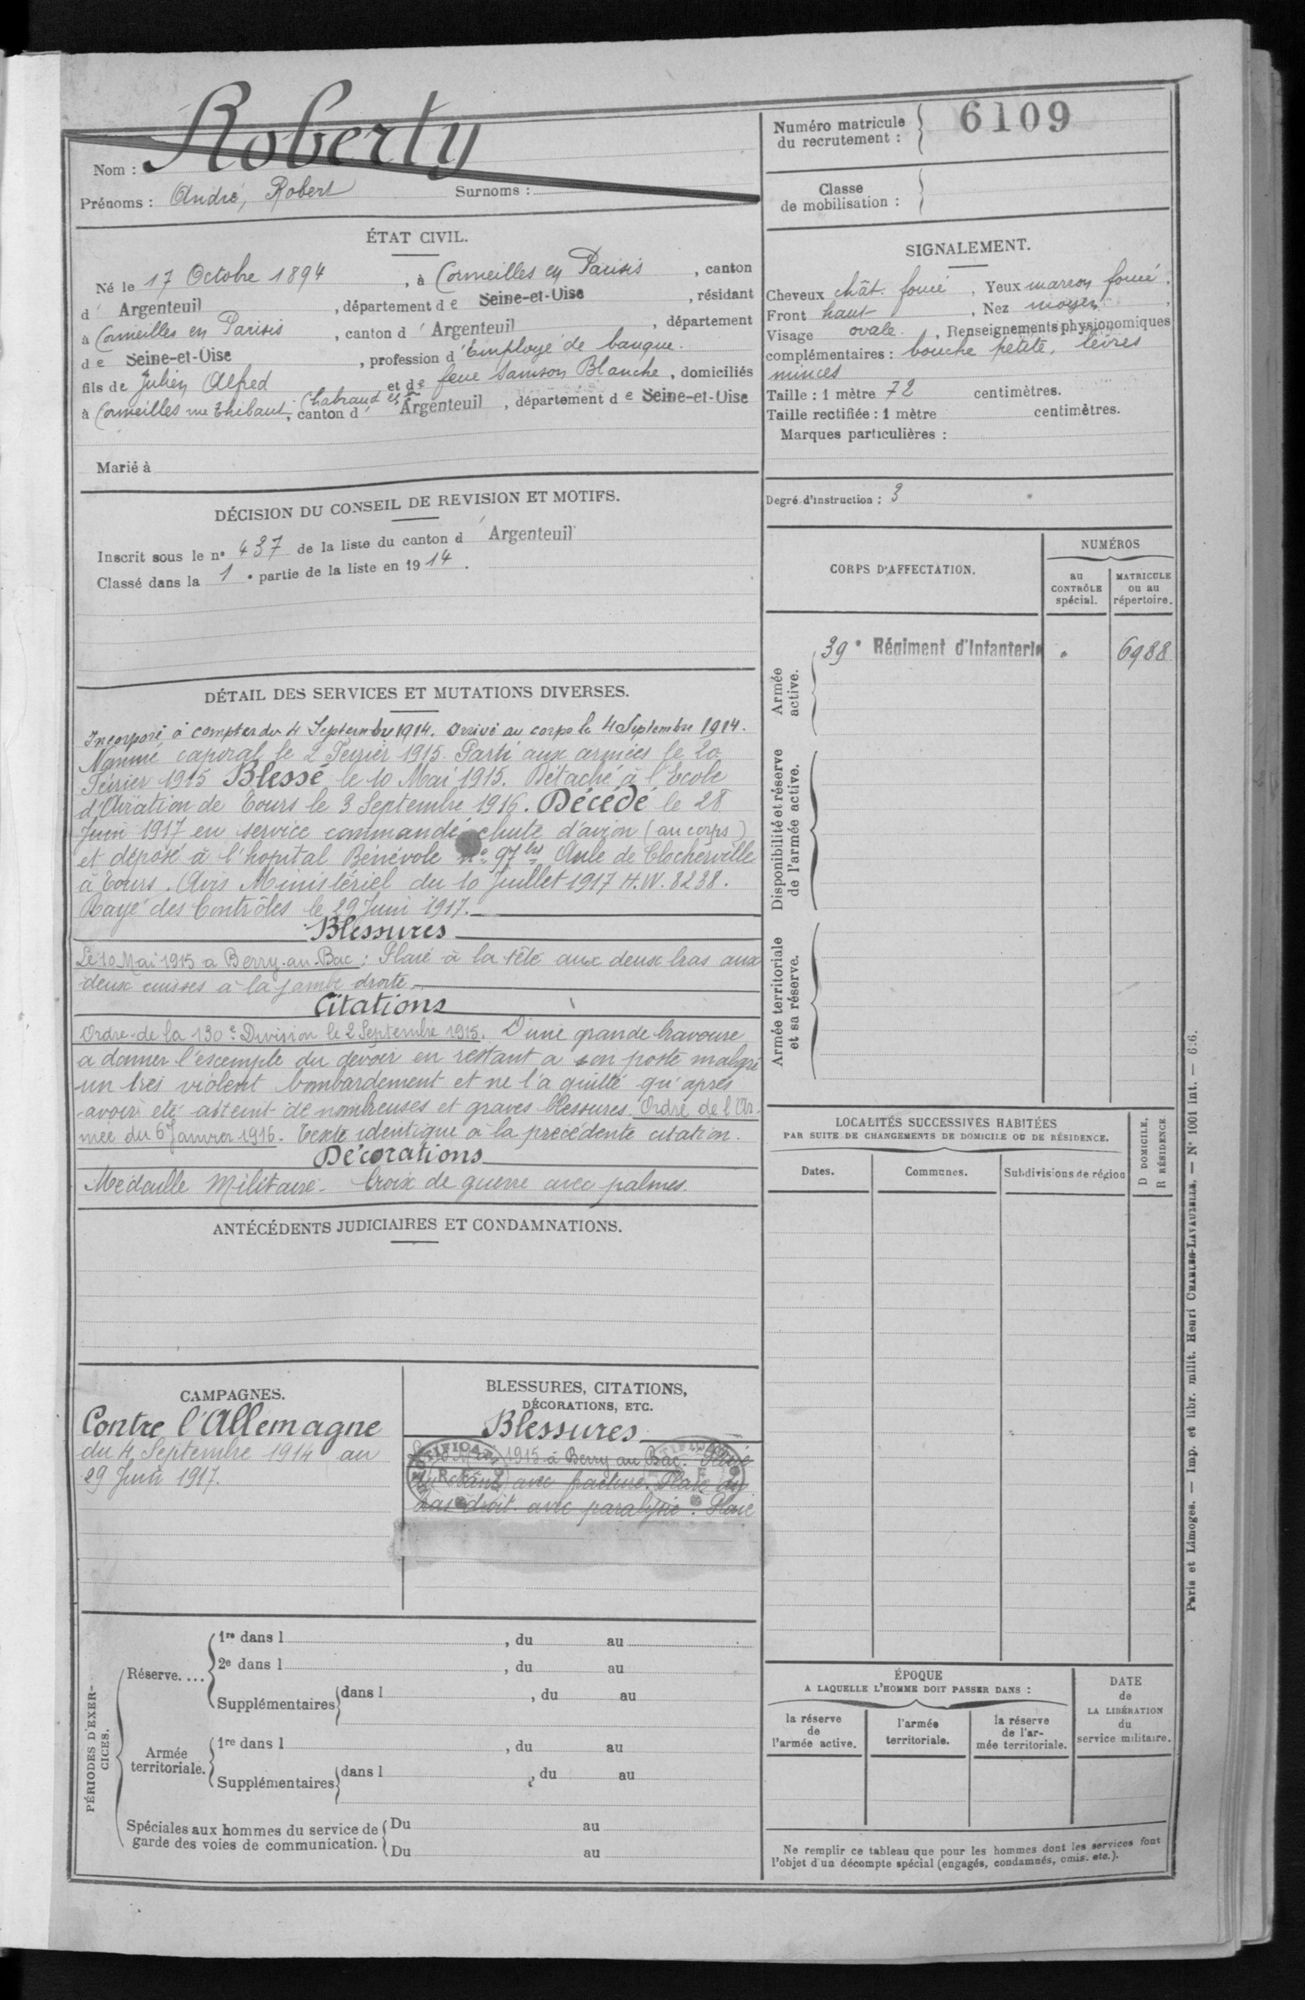 Nom : Roberty
Prénoms : André, Robert Surnoms :
ÉTAT CIVIL.
Né le 17 Octobre 1894, à Cormeilles en Parisis, canton
d' Argenteuil, département de Seine-et-Oise, résidant
à Cormeilles en Parisis, canton d' Argenteuil, département
de Seine-et-Oise, profession d'Employé de banque.
fils de Julien Alfred et de feue Samson Blanche, domiciliés
à Cormeilles rue Thibaut-Chabraud, canton d' Argenteuil, département de Seine-et-Oise
Marié à
DÉCISION DU CONSEIL DE REVISION ET MOTIFS.
Inscrit sous le n° 437 de la liste du canton d' Argenteuil
Classé dans la 1e partie de la liste en 1914.
DÉTAIL DES SERVICES ET MUTATIONS DIVERSES.
Incorporé à compter du 4 Septembre 1914. Arrivé au corps le 4 Septembre 1914.
Nommé caporal le 2 Février 1915. Parti aux armées le 20
Février 1915 Blessé le 10 Mai 1915. Détaché à l'Ecole
d'Aviation de Tours le 3 Septembre 1916. Décédé le 28
Juin 1917 en service commandé chute d'avion (au corps)
et déposé à l'hopital Bénévole n° 97 bis Asile de Clocheville
à Tours. Avis Ministériel du 10 Juillet 1917 H.W. 8238.
Rayé des Contrôles le 29 Juin 1917.
Blessures
Le 10 Mai 1915 à Berry-au-Bac : Plaie à la tête aux deux bras aux
deux cuisses à la jambe droite.
Citations
Ordre de la 130e Division le 2 Septembre 1915. D'une grande bravoure
a donner l'exemple du devoir en restant a son poste malgré
un très violent bombardement et ne l'a quitté qu'après
avoir été atteint de nombreuses et graves blessures. Ordre de l'Ar-
mée du 6 Janvier 1916. Texte identique à la précédente citation.
Décorations
Médaille Militaire - Croix de guerre avec palmes.
ANTÉCÉDENTS JUDICIAIRES ET CONDAMNATIONS.
CAMPAGNES.
Contre l'Allemagne
du 4 Septembre 1914 au
29 Juin 1917.
BLESSURES, CITATIONS,
DÉCORATIONS, ETC.
Blessures
1915 à Berry au Bac. Plaie
du crâne avec fracture. Plaie du
bras droit avec paralysie. Plaie
PÉRIODES D'EXER-
CICES.
Réserve....
1re dans l , du au
2e dans l , du au
Supplémentaires dans l , du au
Armée
territoriale.
1re dans l , du au
Supplémentaires dans l , du au
Spéciales aux hommes du service de
garde des voies de communication.
Du au
Du au
Numéro matricule
du recrutement : 6109
Classe
de mobilisation :
SIGNALEMENT.
Cheveux chât. foncé, Yeux marron foncé,
Front haut, Nez moyen,
Visage ovale, Renseignements physionomiques
complémentaires : bouche petite, lèvres
minces
Taille : 1 mètre 72 centimètres.
Taille rectifiée : 1 mètre centimètres.
Marques particulières :
Degré d'instruction : 3
CORPS D'AFFECTATION.
NUMÉROS
au
CONTRÔLE
spécial.
MATRICULE
ou au
répertoire.
Armée
active.
39e Régiment d'Infanterie " 6988
Disponibilité et réserve
de l'armée active.
Armée territoriale
et sa réserve.
LOCALITÉS SUCCESSIVES HABITÉES
PAR SUITE DE CHANGEMENTS DE DOMICILE OU DE RÉSIDENCE.
Dates. Communes. Subdivisions de région
D DOMICILE.
R RÉSIDENCE
ÉPOQUE
A LAQUELLE L'HOMME DOIT PASSER DANS :
la réserve
de
l'armée active.
l'armée
territoriale.
la réserve
de l'ar-
mée territoriale.
DATE
de
LA LIBÉRATION
du
service militaire.
Ne remplir ce tableau que pour les hommes dont les services font
l'objet d'un décompte spécial (engagés, condamnés, omis. etc.).
Paris et Limoges. — Imp. et libr. milit. Henri CHARLES-LAVAUZELLE. — N° 1001 int. — 6.6.